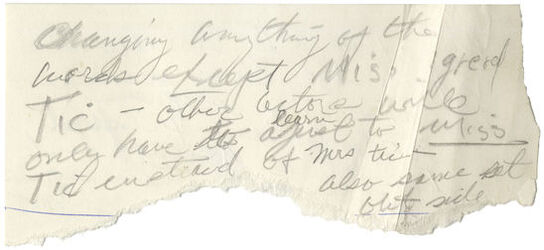 Changing anything of the
words except Miss
Tic - other actors will
only have to learn to Miss
Tic instead of Mrs Tic
also same set
out side